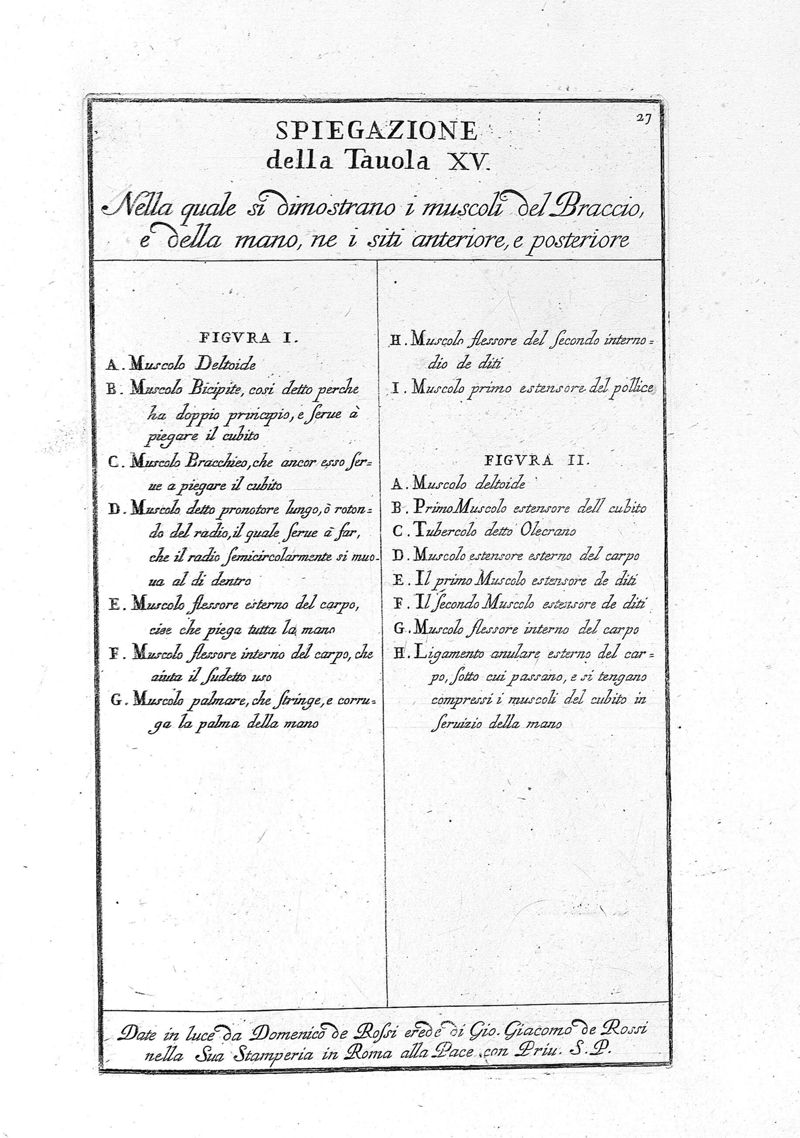 27
SPIEGAZIONE
della Tauola XV.
Nella quale si dimostrano i muscoli del Braccio,
e della mano, ne i siti anteriore, e posteriore
FIGVRA I.
A. Muscolo Deltoide
B. Muscolo Bicipite, così detto perche
ha doppio principio, e ſerue à
piegare il cubito
C. Muscolo Bracchieo, che ancor esso ſer=
ue a piegare il cubito
D. Muscolo detto pronotore lungo, ò roton=
do del radio, il quale ſerue à far,
che il radio ſemicircolarmente si muo=
ua al di dentro
E. Muscolo flessore esterno del carpo,
cise che piega tutta la mano
F. Muscolo flessore interno del carpo, che
aiuta il ſudetto uso
G. Muscolo palmare, che ſtringe, e corru=
ga la palma della mano
H. Muscolo flessore del ſecondo interno=
dio de diti
I. Muscolo primo estensore del pollice
FIGVRA II.
A. Muscolo deltoide
B. Primo Muscolo estensore dell cubito
C. Tubercolo detto Olecrano
D. Muscolo estensore esterno del carpo
E. Il primo Muscolo estensore de diti
F. Il ſecondo Muscolo estensore de diti
G. Muscolo flessore interno del carpo
H. Ligamento anulare esterno del car=
po, ſotto cui passano, e si tengano
compressi i muscoli del cubito in
ſeruizio della mano
Date in luce da Domenico de Roſsi erede di Gio. Giacomo de Rossi
nella Sua Stamperia in Roma alla Pace con Priu. S.P.